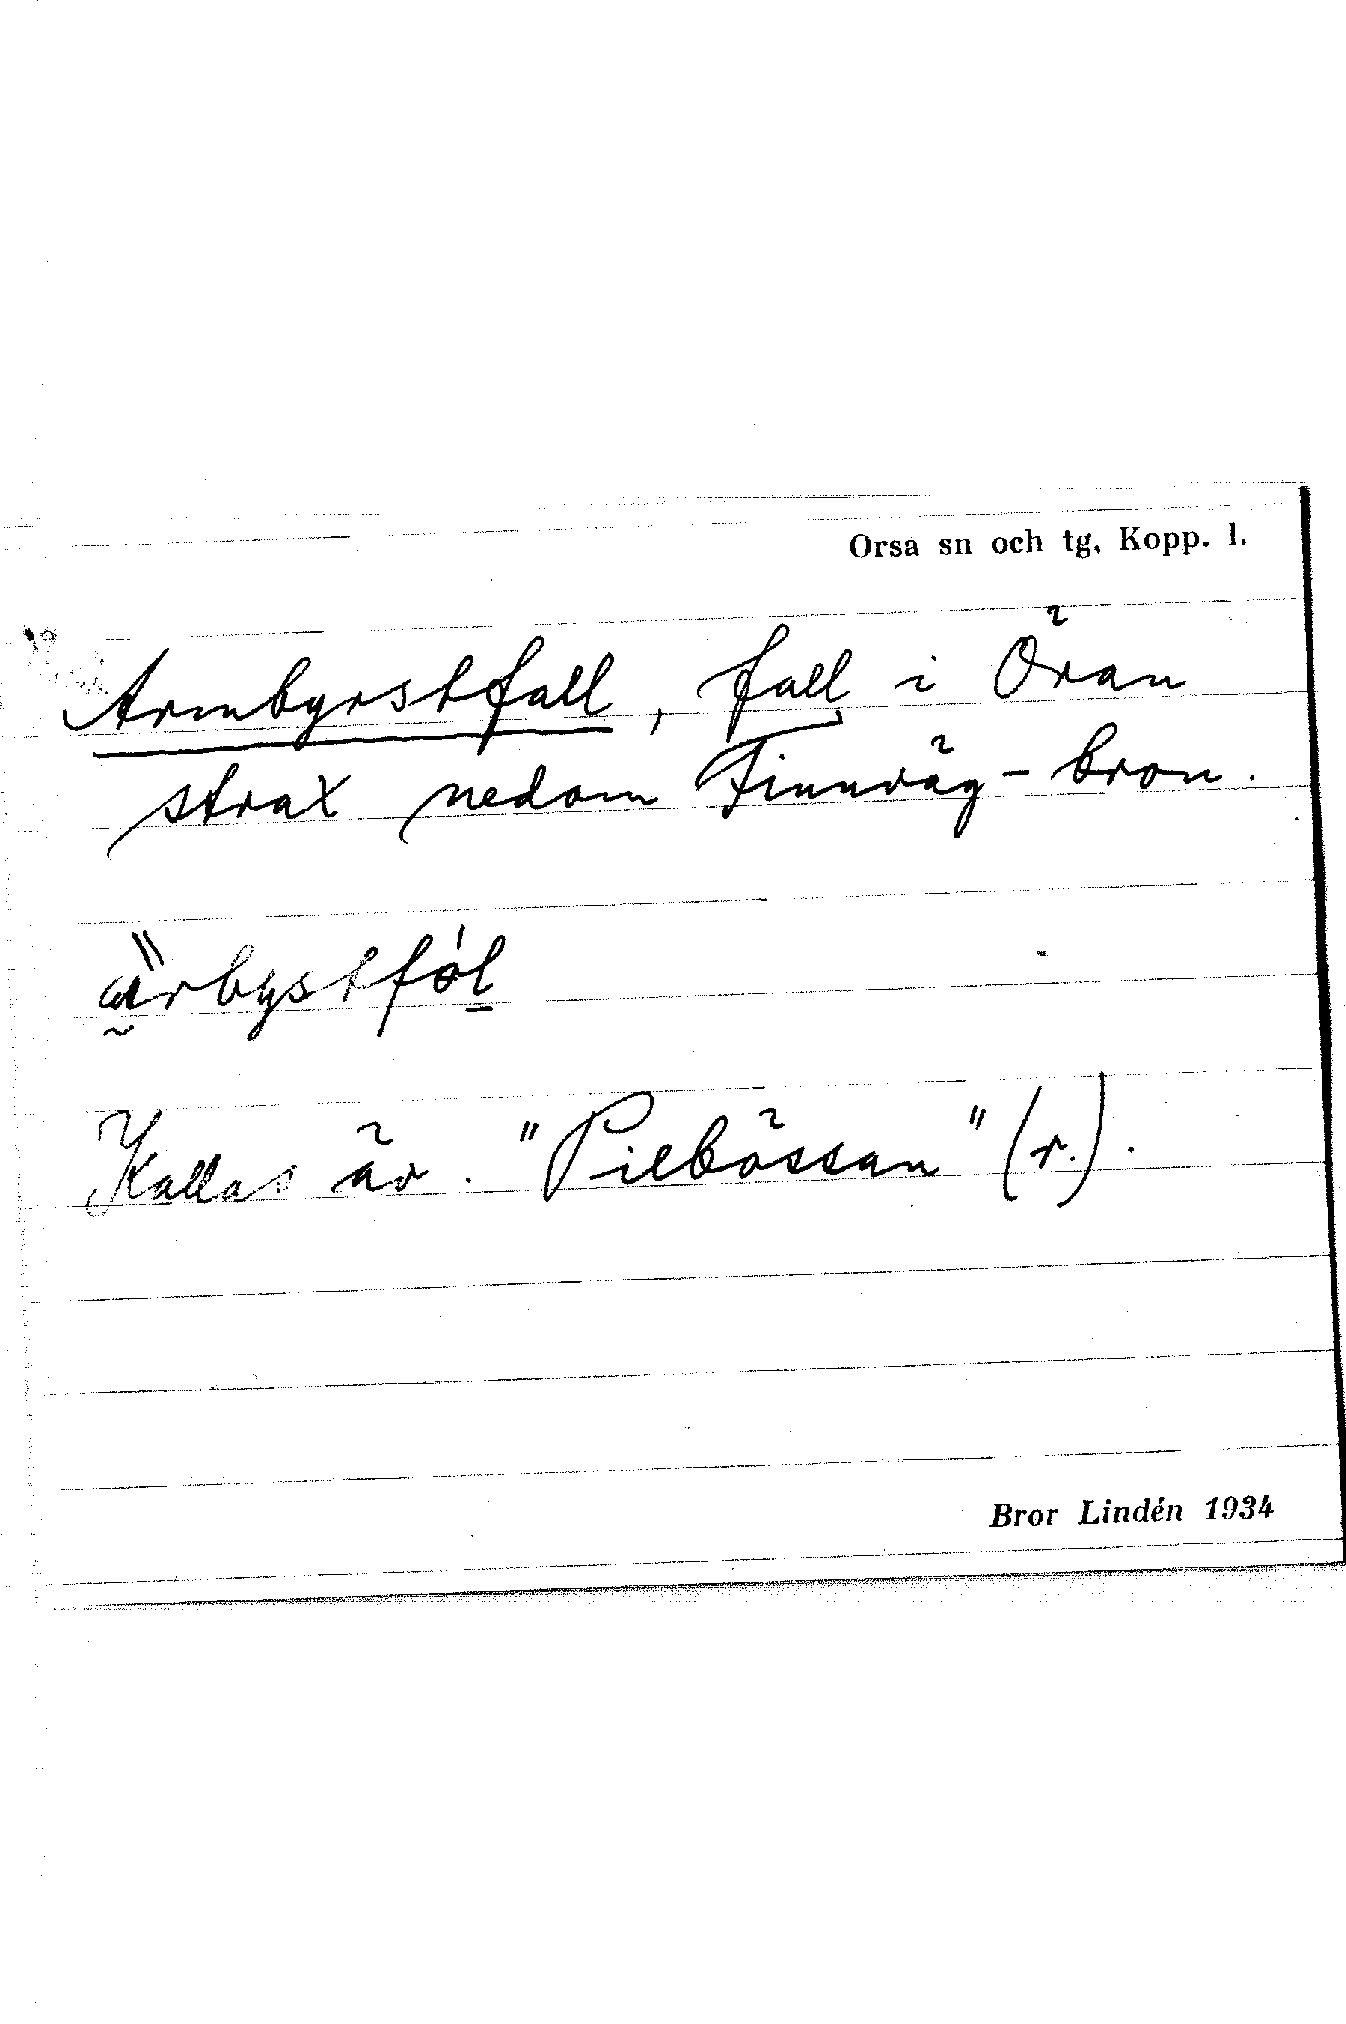 Orsa sn och tg, Kopp. l.
Armbyrstfall, fall i Öran
strax nedom Finnväg-bron.
ärbystföl
Kallas äv. "Pilbössan" (r.).
Bror Lindén 1934